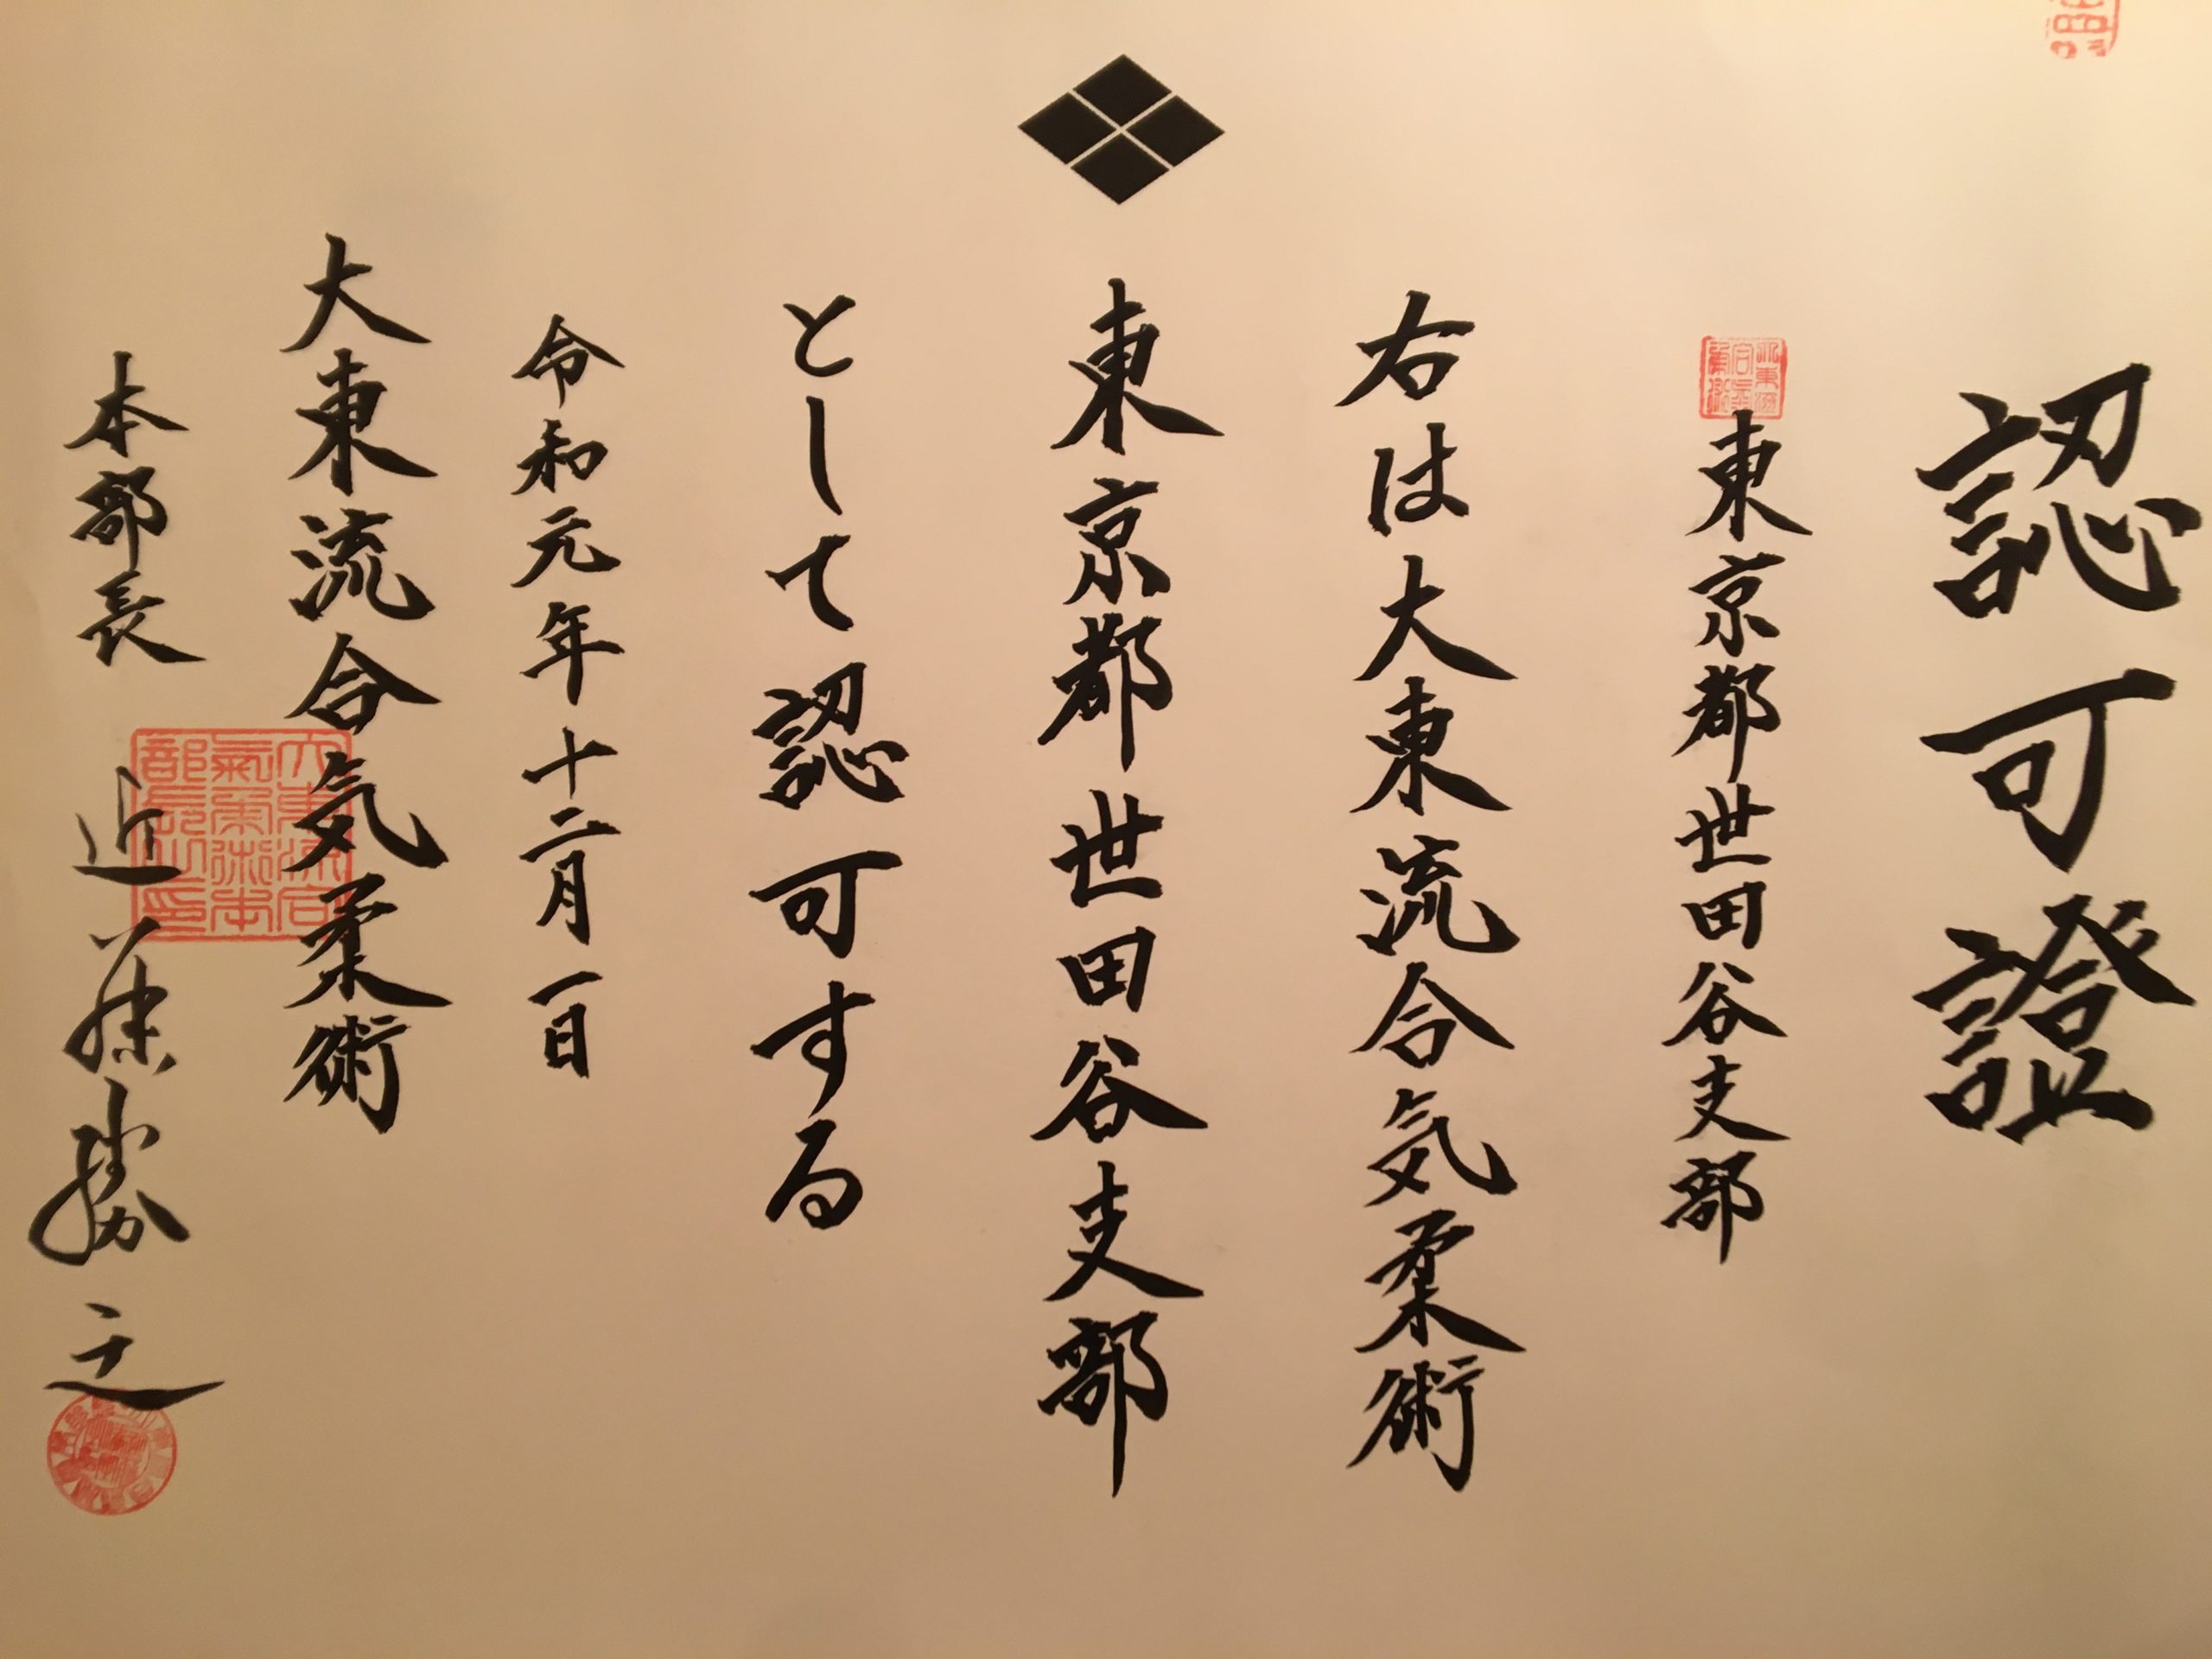 認可證
東京都世田谷支部
右は大東流合気柔術
東京都世田谷支部
として認可する
令和元年十二月一日
大東流合気柔術
本部長 近藤勝之